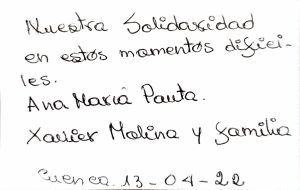 Nuestra Solidaridad
en estos momentos difíci-
les.
Ana María Pauta.
Xavier Molina y familia
Cuenca. 13-04-22